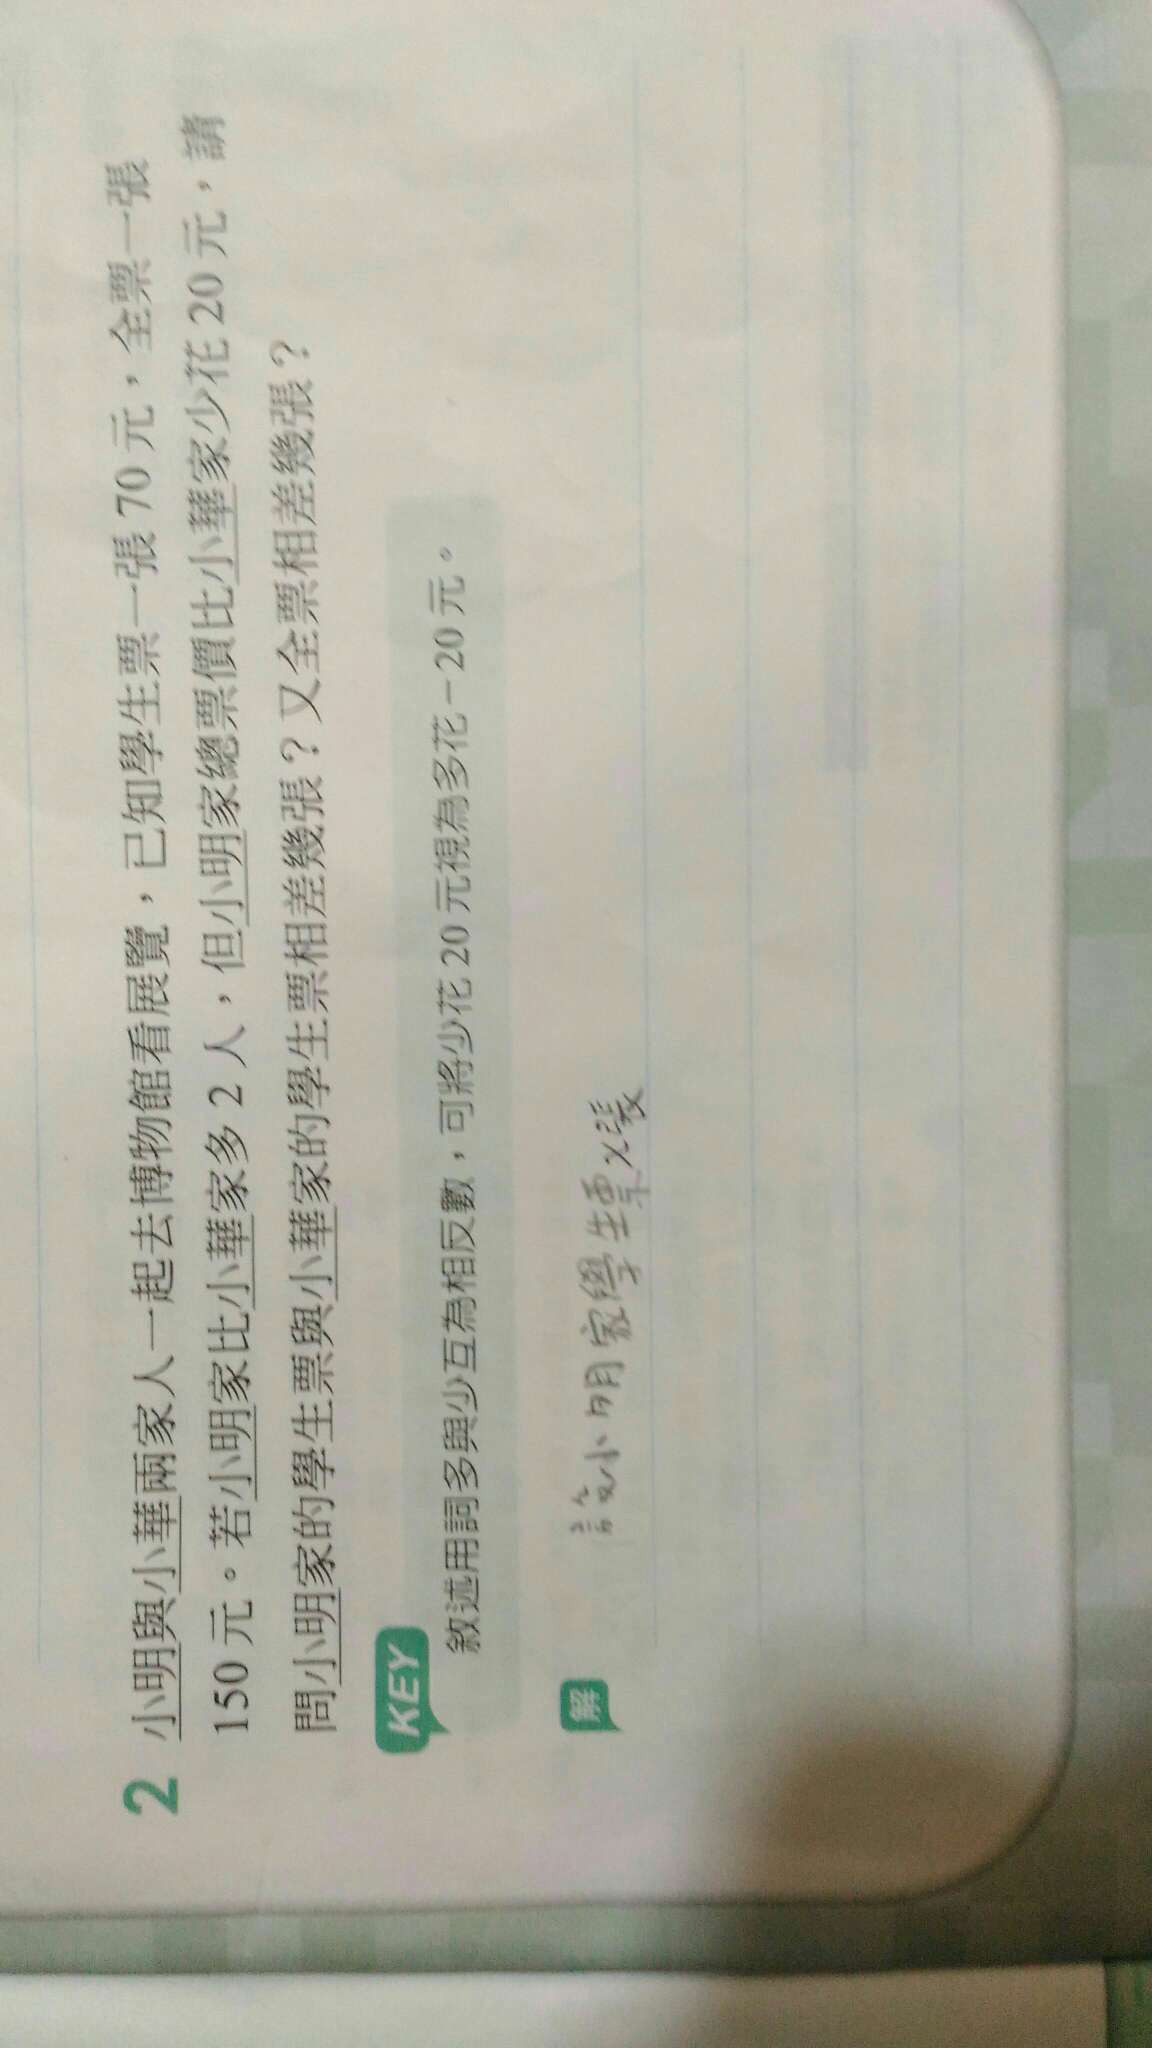 2 小明與小華兩家人一起去博物館看展覽，已知學生票一張 70 元，全票一張
150 元。若小明家比小華家多 2 人，但小明家總票價比小華家少花 20 元，請
問小明家的學生票與小華家的學生票相差幾張？又全票相差幾張？
KEY
敘述用詞多與少互為相反數，可將少花 20 元視為多花－20 元。
解
設小明家學生票x張